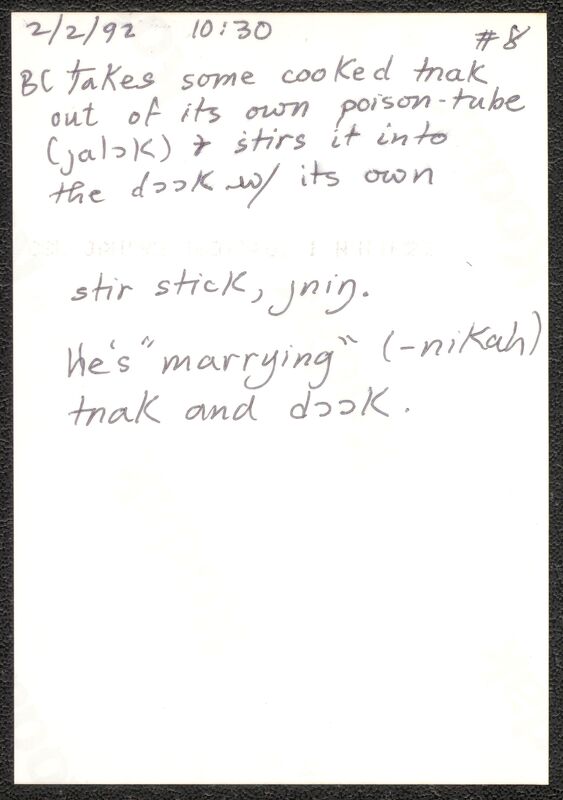 2/2/92 10:30 #8
BC takes some cooked tnak
out of its own poison-tube
(jalɔk) & stirs it into
the dɔɔk w/ its own
stir stick, jniŋ.
he's "marrying" (-nikah)
tnak and dɔɔk.